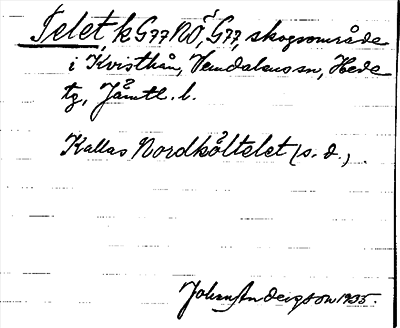 Telet, k G77 NÖ, G77, skogsområde
i Kvisthån, Vemdalens sn, Hede
tg, Jämtl. l.
Kallas Nordhåltelet (s. d.)
Johan Andersson 1935.